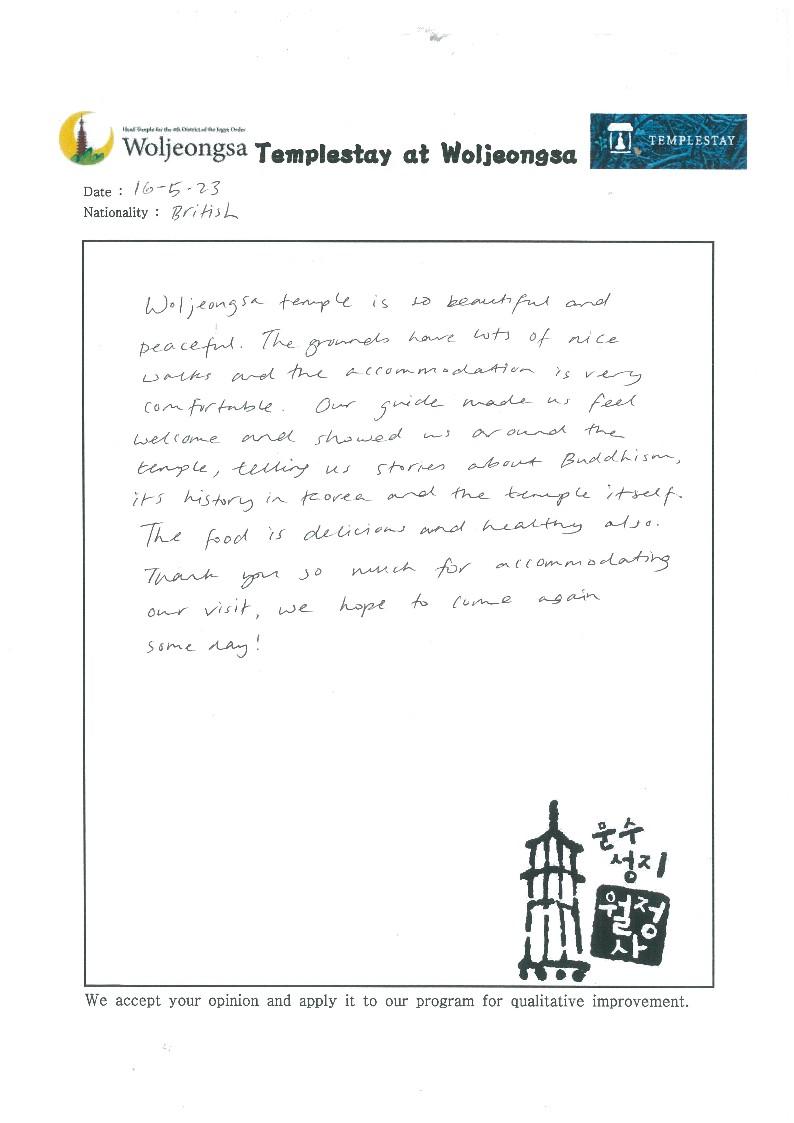 Head Temple for the 4th District of the Jogye Order
Woljeongsa Templestay at Woljeongsa
TEMPLESTAY
Date : 16-5-23
Nationality : British
Woljeongsa temple is so beautiful and
peaceful. The grounds have lots of nice
walks and the accommodation is very
comfortable. Our guide made us feel
welcome and showed us around the
temple, telling us stories about Buddhism,
it's history in Korea and the temple itself.
The food is delicious and healthy also.
Thank you so much for accommodating
our visit, we hope to come again
some day!
문수
성지
월정
사
We accept your opinion and apply it to our program for qualitative improvement.